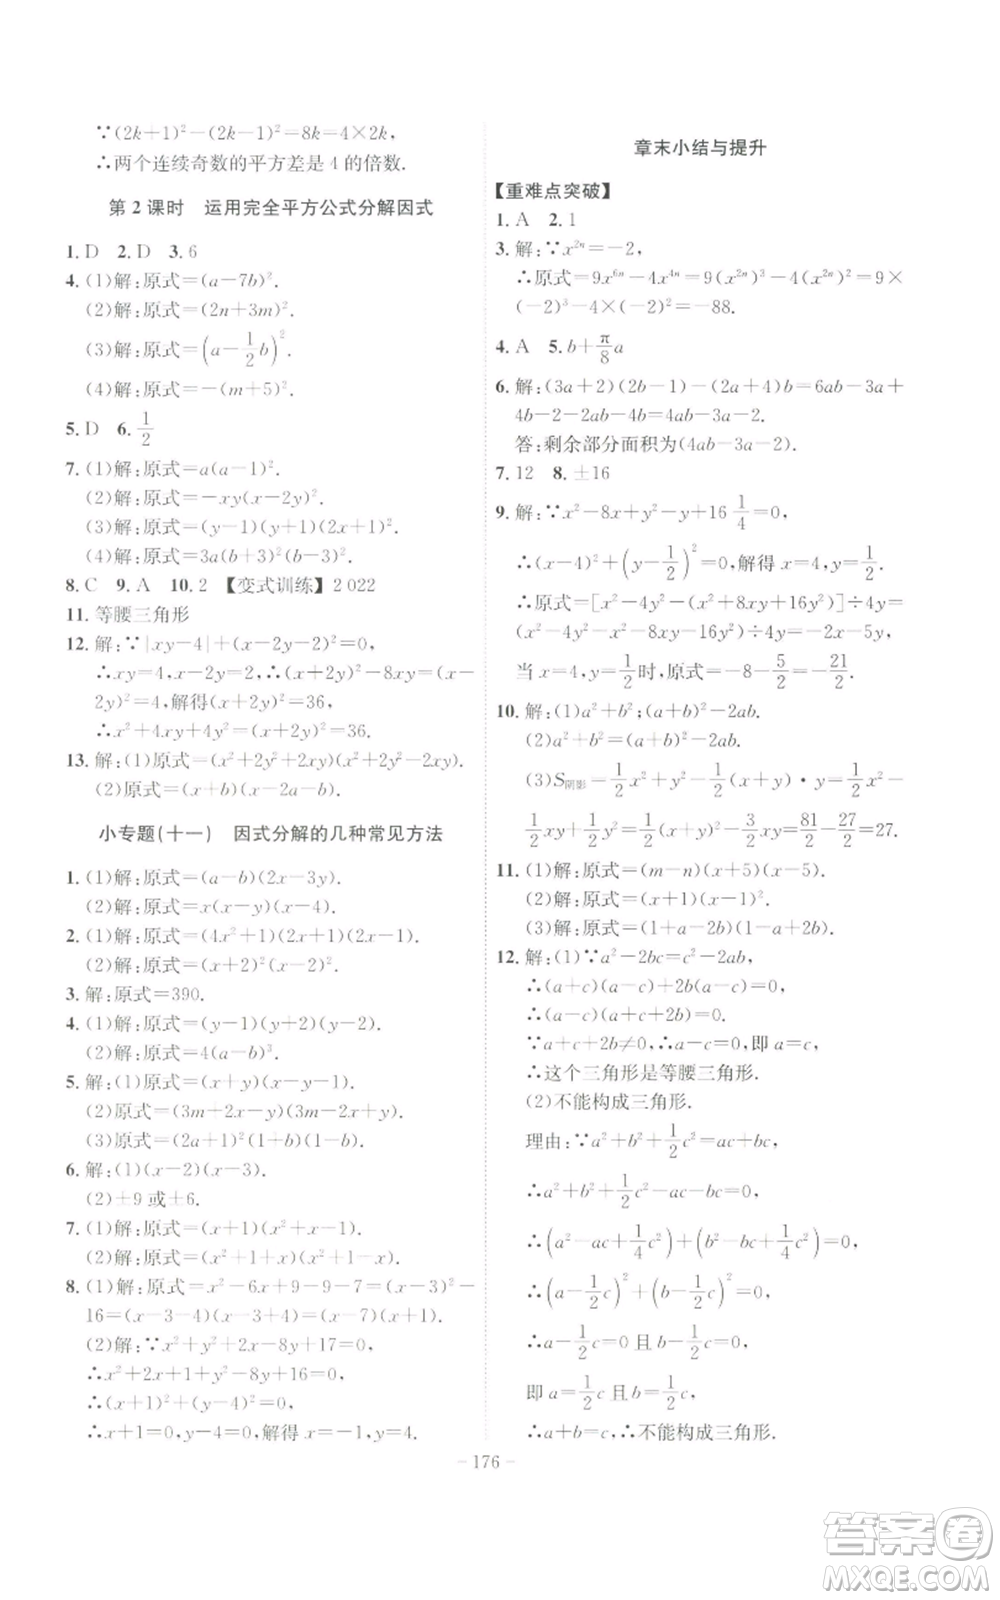 ∵(2k+1)²-(2k-1)²=8k=4×2k,
∴两个连续奇数的平方差是 4 的倍数.
第 2 课时 运用完全平方公式分解因式
1. D 2. D 3. 6
4. (1)解:原式=(a-7b)².
(2)解:原式=(2n+3m)².
(3)解:原式=(a-1/2b)².
(4)解:原式=-(m+5)².
5. D 6. 1/2
7. (1)解:原式=a(a-1)².
(2)解:原式=-xy(x-2y)².
(3)解:原式=(y-1)(y+1)(2x+1)².
(4)解:原式=3a(b+3)²(b-3)².
8. C 9. A 10. 2 【变式训练】2 022
11. 等腰三角形
12. 解:∵|xy-4|+(x-2y-2)²=0,
∴xy=4,x-2y=2,∴(x+2y)²-8xy=(x-
2y)²,解得(x+2y)²=36,
∴x²+4xy+4y²=(x+2y)²=36.
13. 解:(1)原式=(x²+2y²+2xy)(x²+2y²-2xy).
(2)原式=(x+b)(x-2a-b).
小专题(十一) 因式分解的几种常见方法
1. (1)解:原式=(a-b)(2x-3y).
(2)解:原式=x(x-y)(x-4).
2. (1)解:原式=(4x²+1)(2x+1)(2x-1).
(2)解:原式=(x+2)²(x-2)².
3. 解:原式=390.
4. (1)解:原式=(y-1)(y+2)(y-2).
(2)解:原式=4(a-b)³.
5. 解:(1)原式=(x+y)(x-y-1).
(2)原式=(3m+2x-y)(3m-2x+y).
(3)原式=(2a+1)²(1+b)(1-b).
6. 解:(1)(x-2)(x-3).
(2)±9 或±6.
7. (1)解:原式=(x+1)(x²+x+1).
(2)解:原式=(x²+1+x)(x²+1-x).
8. (1)解:原式=x²-6x+9-9-7=(x-3)²-
16=(x-3-4)(x-3+4)=(x-7)(x+1).
(2)解:∵x²+y²+2x-8y+17=0,
∴x²+2x+1+y²-8y+16=0,
∴(x+1)²+(y-4)²=0,
∴x+1=0,y-4=0,解得 x=-1,y=4.
章末小结与提升
【重难点突破】
1. A 2. 1
3. 解:∵x²ⁿ=-2,
∴原式=9x⁶ⁿ-4x⁴ⁿ=9(x²ⁿ)³-4(x²ⁿ)²=9×
(-2)³-4×(-2)²=-88.
4. A 5. b+π/8a
6. 解:(3a+2)(2b-1)-(2a+4)b=6ab-3a+
4b-2-2ab-4b=4ab-3a-2.
答:剩余部分面积为(4ab-3a-2).
7. 12 8. ±16
9. 解:∵x²-8x+y²-y+16 1/4=0,
∴(x-4)²+(y-1/2)²=0,解得 x=4,y=1/2.
∴原式=[x²-4y²-(x²+8xy+16y²)]÷4y=
(x²-4y²-x²-8xy-16y²)÷4y=-2x-5y,
当 x=4,y=1/2时,原式=-8-5/2=-21/2.
10. 解:(1)a²+b²;(a+b)²-2ab.
(2)a²+b²=(a+b)²-2ab.
(3)S阴影=1/2x²+y²-1/2(x+y)·y=1/2x²-
1/2xy+1/2y²=1/2(x+y)²-3/2xy=81/2-27/2=27.
11. (1)解:原式=(m-n)(x+5)(x-5).
(2)解:原式=(x+1)²(x-1)².
(3)解:原式=(1+a-2b)(1-a+2b).
12. 解:(1)∵a²-2bc=c²-2ab,
∴(a+c)(a-c)+2b(a-c)=0,
∴(a-c)(a+c+2b)=0.
∵a+c+2b≠0,∴a-c=0,即 a=c,
∴这个三角形是等腰三角形.
(2)不能构成三角形.
理由:∵a²+b²+1/2c²=ac+bc,
∴a²+b²+1/2c²-ac-bc=0,
∴(a²-ac+1/4c²)+(b²-bc+1/4c²)=0,
∴(a-1/2c)²+(b-1/2c)²=0,
∴a-1/2c=0 且 b-1/2c=0,
即 a=1/2c 且 b=1/2c,
∴a+b=c,∴不能构成三角形.
- 176 -
答案圈
MXQE.COM